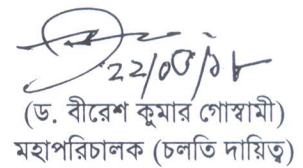 ২২/০৩/১৮
(ড. বীরেশ কুমার গোস্বামী)
মহাপরিচালক (চলতি দায়িত্ব)